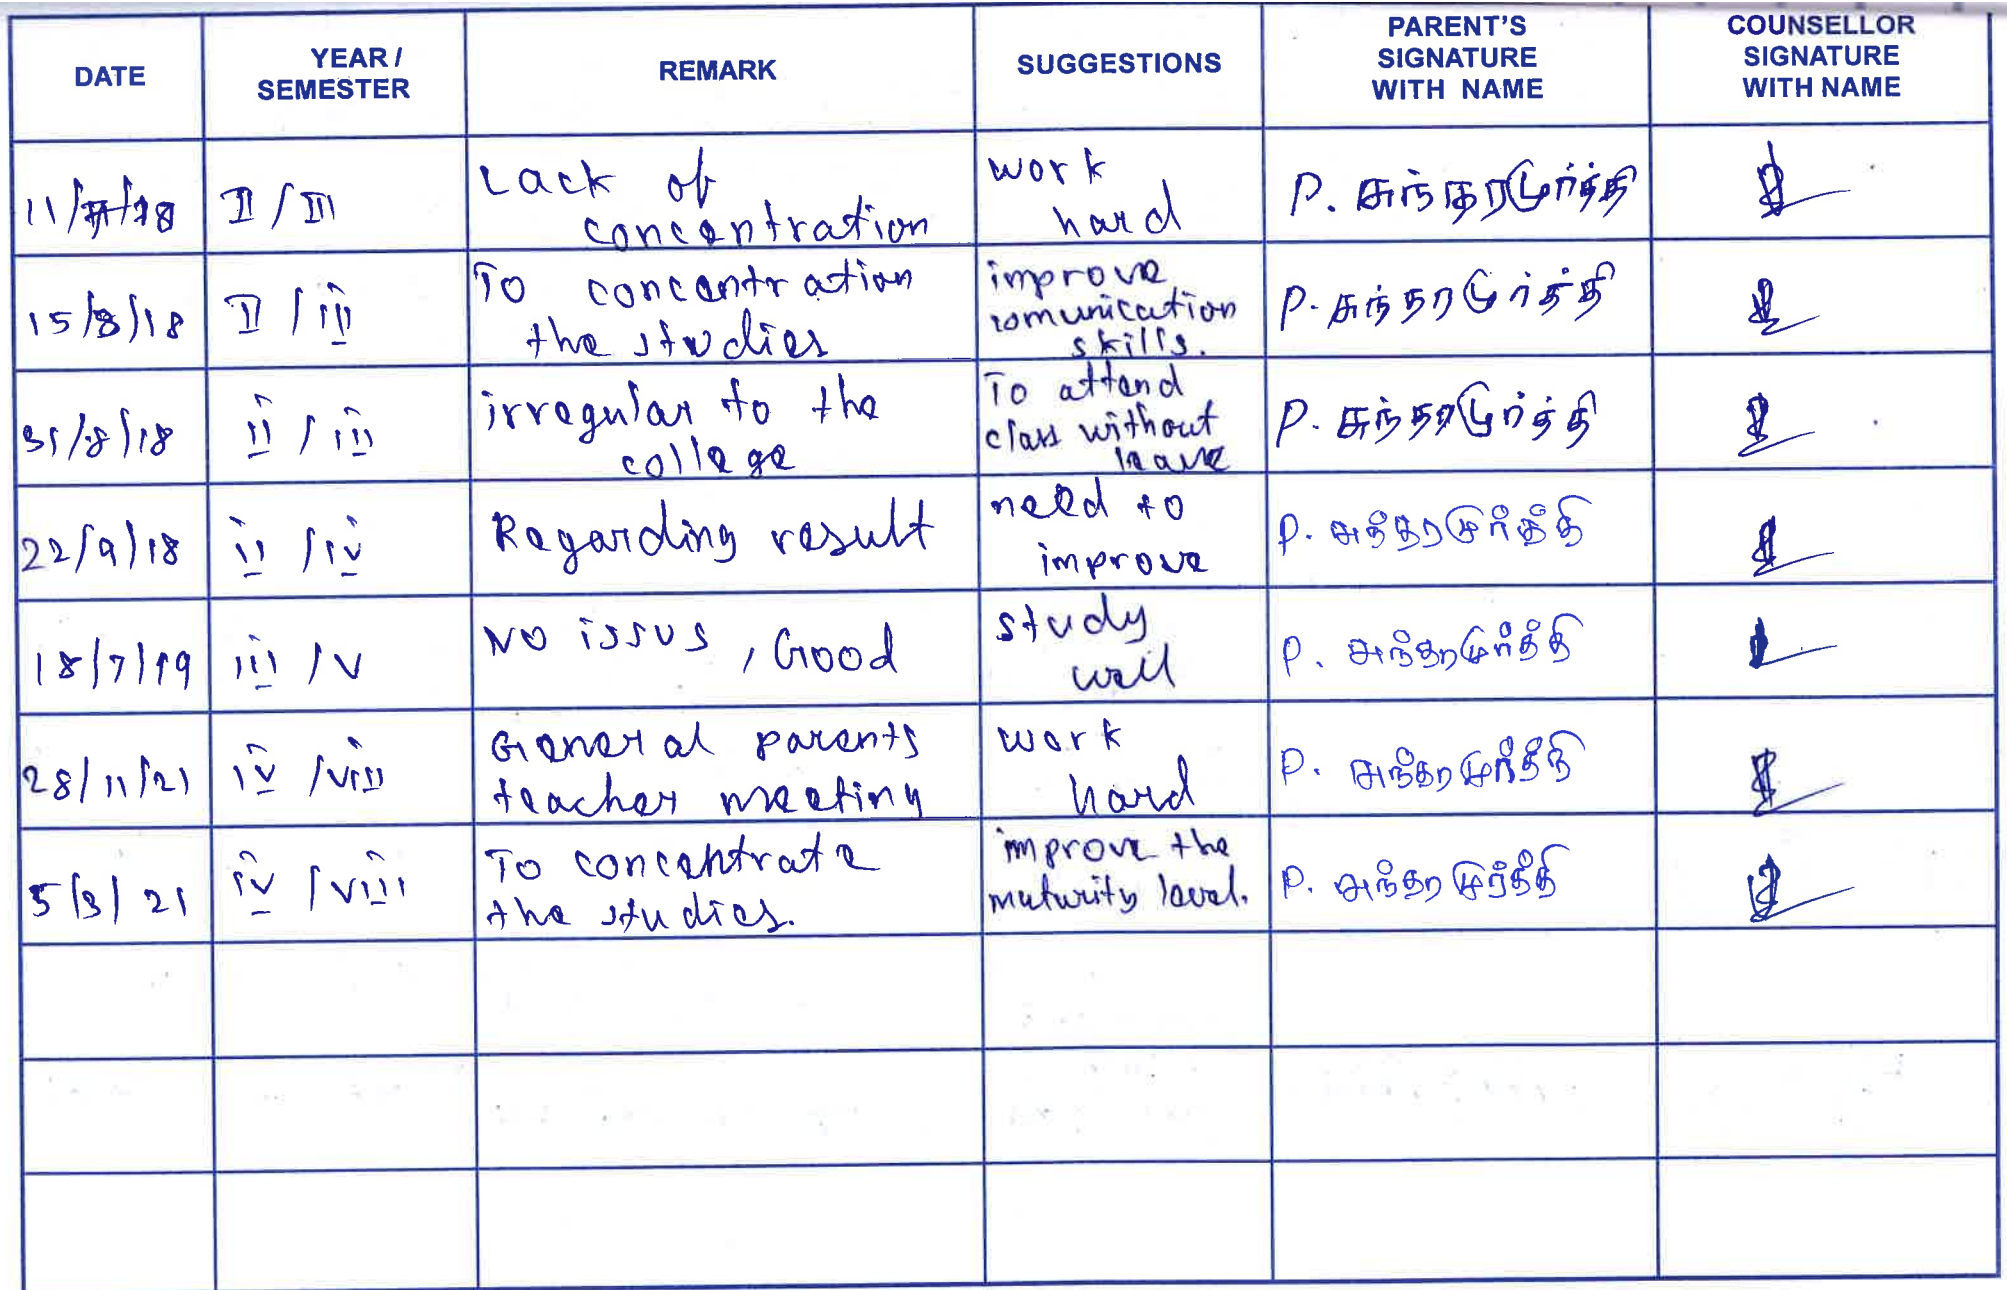 DATE YEAR / SEMESTER REMARK SUGGESTIONS PARENT'S SIGNATURE WITH NAME COUNSELLOR SIGNATURE WITH NAME
11/7/18 II / III Lack of concentration work hard P. சுந்தரமூர்த்தி
15/8/18 II / III To concentration the studies improve comunication skills. P. சுந்தரமூர்த்தி
31/8/18 II / III irregular to the college To attend class without leave P. சுந்தரமூர்த்தி
22/9/18 II / IV Regarding result need to improve P. சுந்தரமூர்த்தி
18/7/19 III / V No issus, Good study well P. சுந்தரமூர்த்தி
28/11/21 IV / VII General parents teacher meeting work hard P. சுந்தரமூர்த்தி
5/3/21 IV / VIII To concentrate the studies. improve the maturity level. P. சுந்தரமூர்த்தி